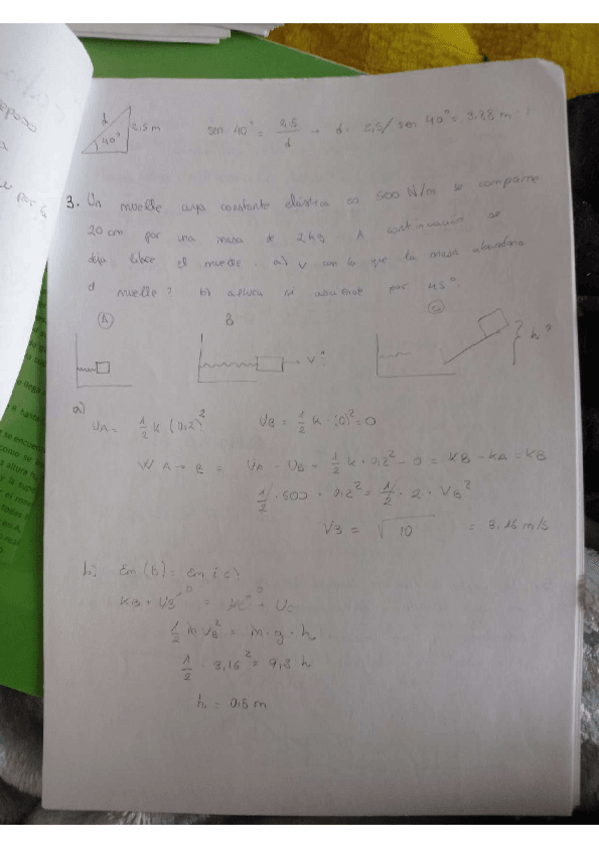 d
2,5 m
40°
sen 40° = 2,5/d → d = 2,5/sen 40° = 3.88 m
3. Un muelle cuya constante elástica es 500 N/m se comprime
20 cm por una masa de 2 kg. A continuación se
deja libre el muelle. a) v con la que la masa abandona
el muelle? b) altura si asciende por 45°.
A
B
C
v?
h?
a)
UA = 1/2 k (0,2)² UB = 1/2 k · (0)² = 0
W A → B = UA - UB = 1/2 k · 0,2² - 0 = KB - KA = KB
1/2 · 500 · 0,2² = 1/2 · 2 · VB²
VB = √10 = 3.16 m/s
b) Em (B) = Em (C)
KB + UB = KC + UC
0
0
1/2 m VB² = m · g · h
1/2 · 3,16² = 9,8 h
h = 0,5 m